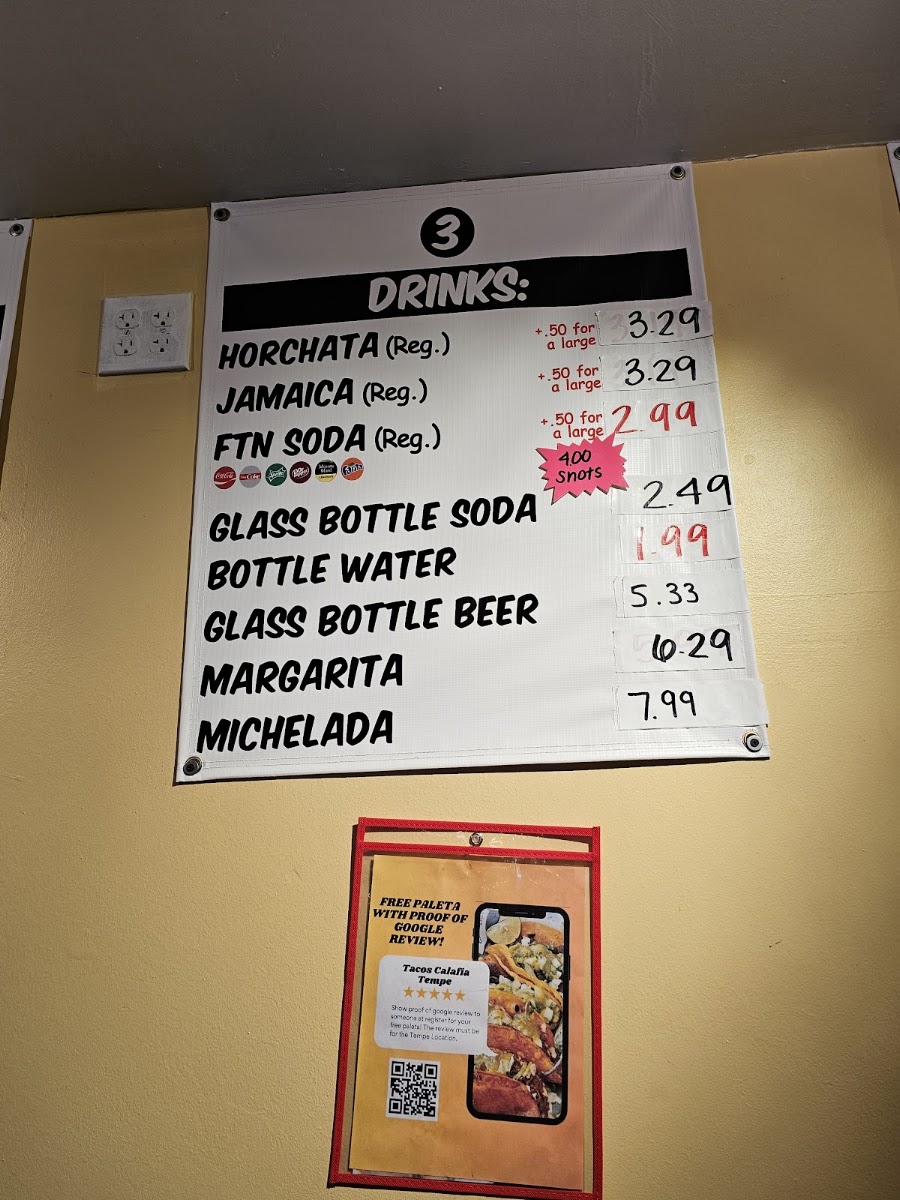 3
DRINKS:
HORCHATA (Reg.) +.50 for a large 3.29
JAMAICA (Reg.) +.50 for a large 3.29
FTN SODA (Reg.) +.50 for a large 2.99
Coca-Cola
4.00 Shots
GLASS BOTTLE SODA 2.49
BOTTLE WATER 1.99
GLASS BOTTLE BEER 5.33
MARGARITA 6.29
MICHELADA 7.99
FREE PALETA
WITH PROOF OF
GOOGLE
REVIEW!
Tacos Calafia
Tempe
Show proof of google review to
someone at register for your
free paleta! The review must be
for the Tempe Location.